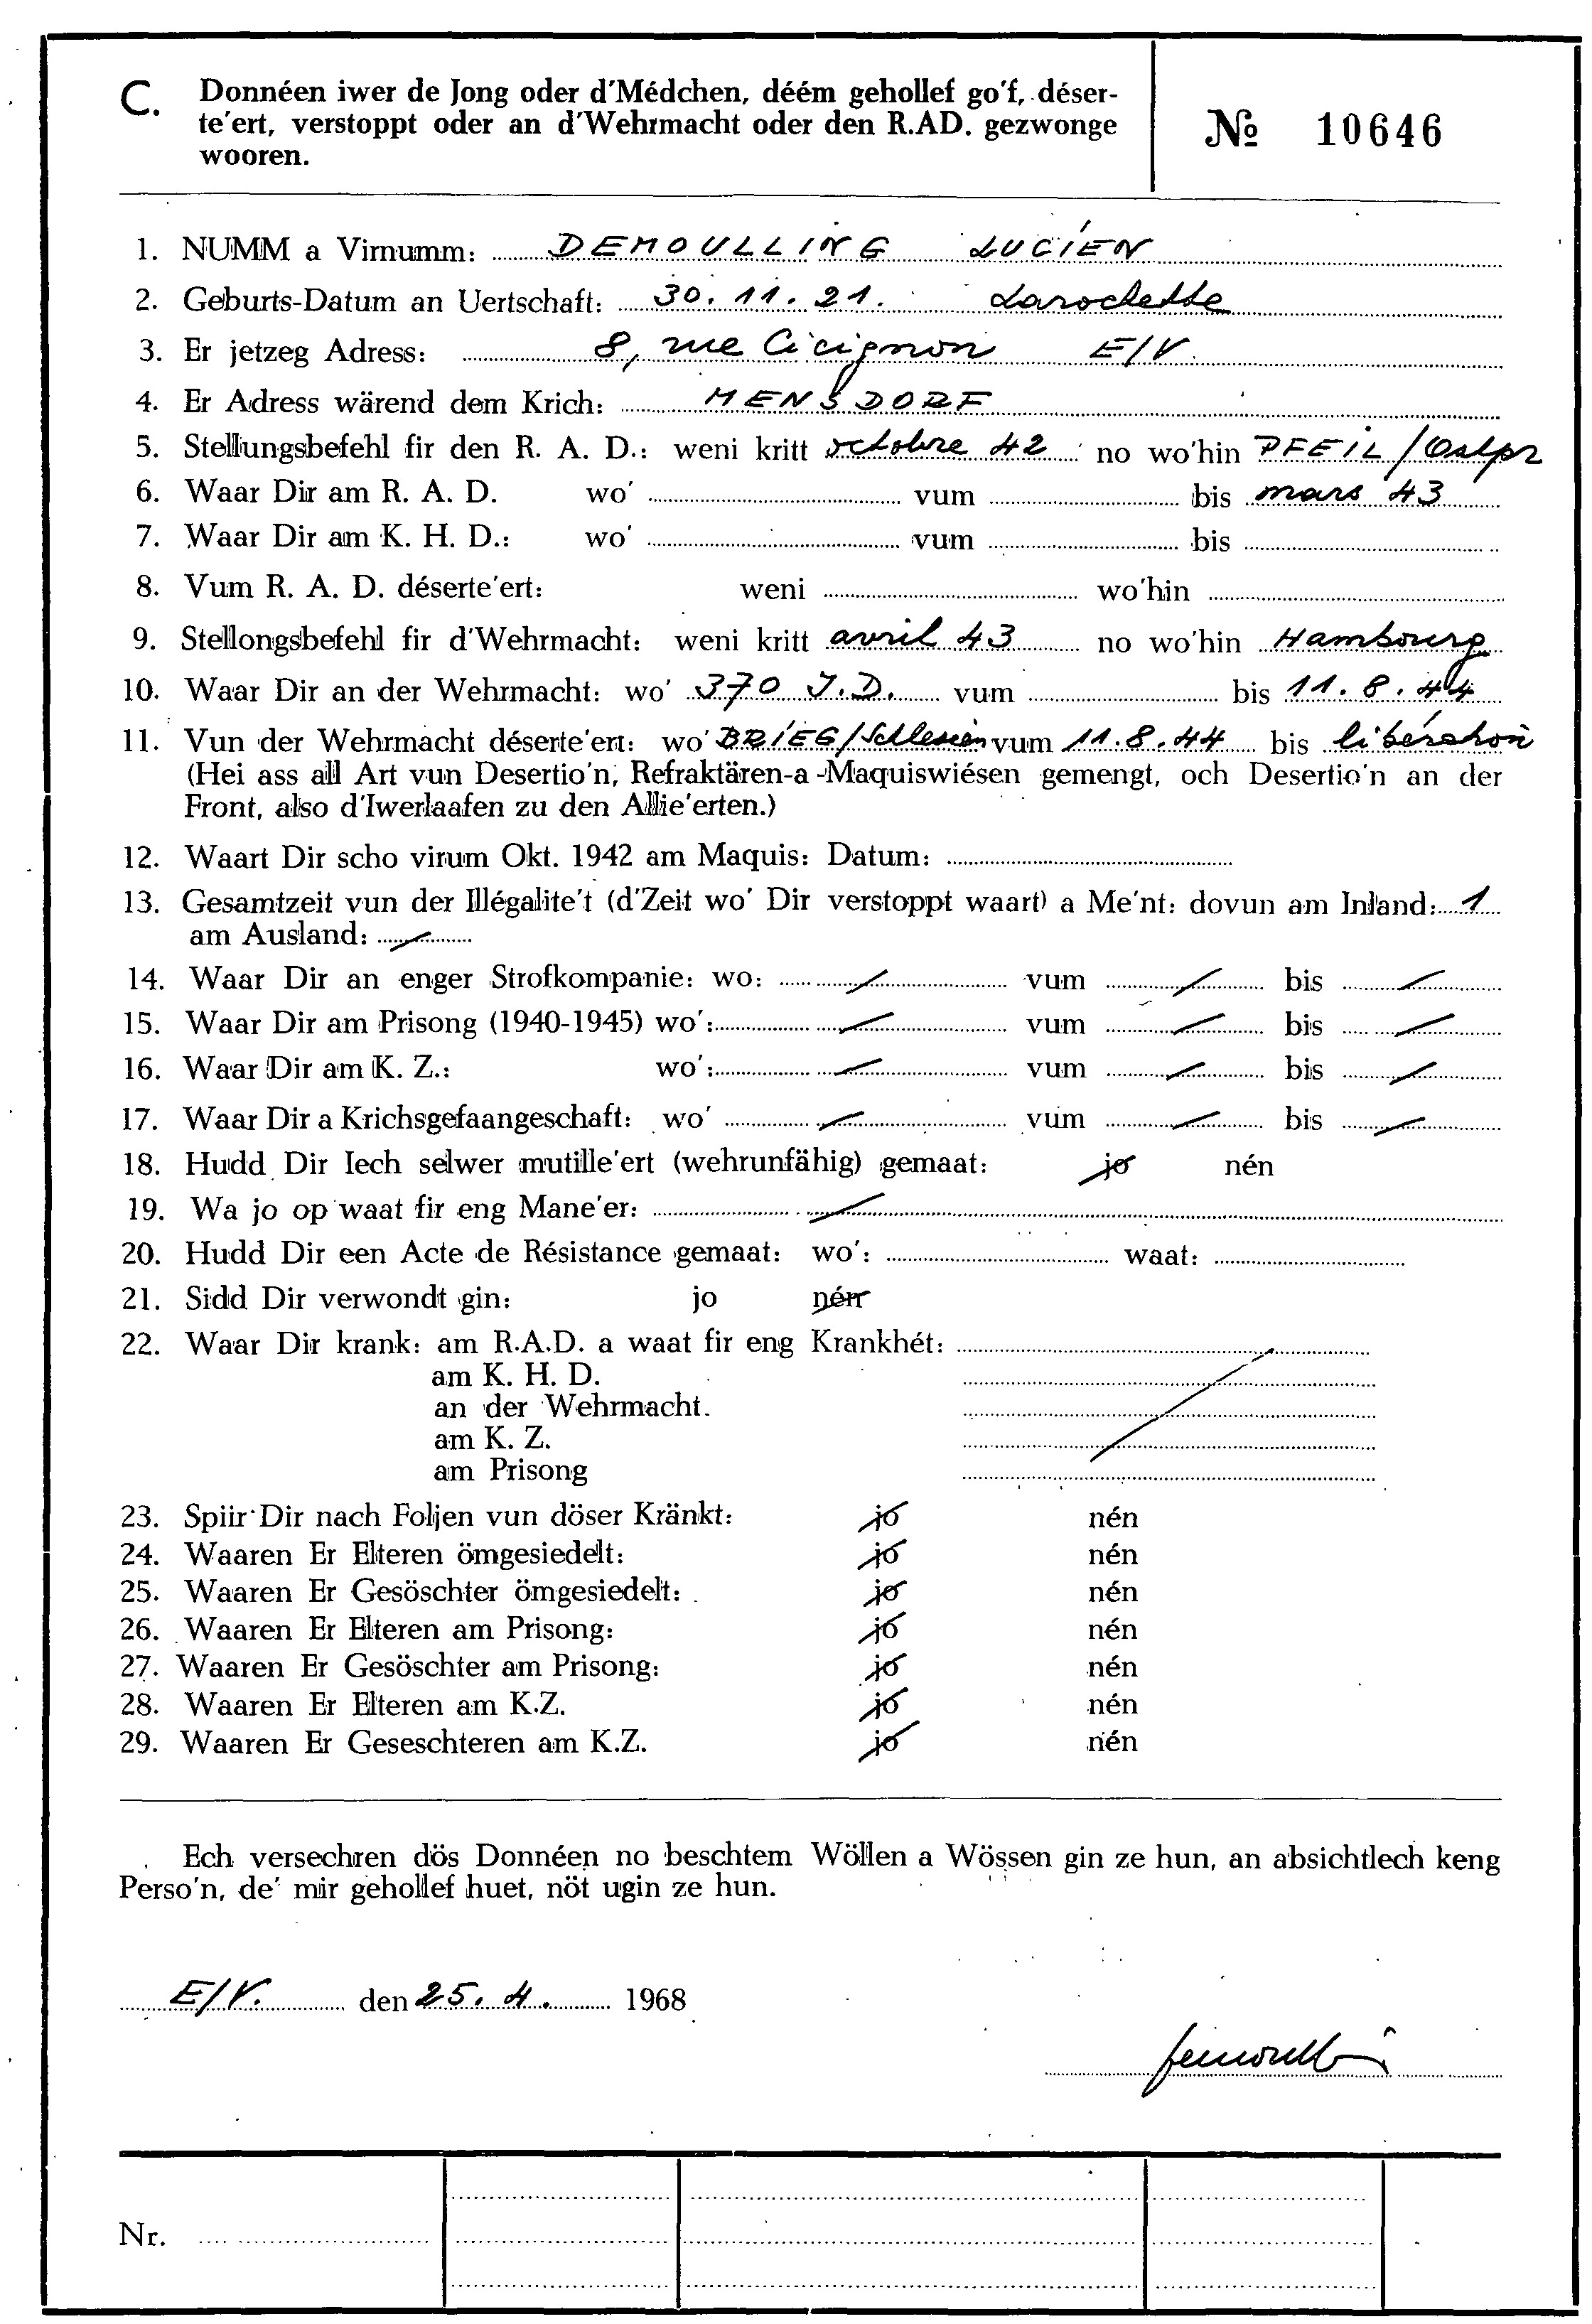 C. Donnéen iwer de Jong oder d'Médchen, déém gehollef go'f, déser-
te'ert, verstoppt oder an d'Wehrmacht oder den R.AD. gezwonge
wooren.
№ 10646
1. NUMM a Virnumm: DEMOULLING LUCIEN
2. Geburts-Datum an Uertschaft: 30.11.21. Larochette
3. Er jetzeg Adress: 8, rue Cicignon E/V.
4. Er Adress wärend dem Krich: MENSDORF
5. Stellungsbefehl fir den R. A. D.: weni kritt octobre 42 no wo'hin PFEIL/Ostpr
6. Waar Dir am R. A. D. wo' vum bis mars 43
7. Waar Dir am K. H. D.: wo' vum bis
8. Vum R. A. D. déserte'ert: weni wo'hin
9. Stellongsbefehl fir d'Wehrmacht: weni kritt avril 43 no wo'hin Hambourg
10. Waar Dir an der Wehrmacht: wo' 370 J.D. vum bis 11.8.44
11. Vun der Wehrmacht déserte'ert: wo' BRIEG/Schlesien vum 11.8.44 bis libération
(Hei ass all Art vun Desertio'n, Refraktären-a-Maquiswiésen gemengt, och Desertio'n an der
Front, also d'Iwerlaafen zu den Allie'erten.)
12. Waart Dir scho virum Okt. 1942 am Maquis: Datum:
13. Gesamtzeit vun der Illégalite't (d'Zeit wo' Dir verstoppt waart) a Me'nt: dovun am Inland: 1
am Ausland: /
14. Waar Dir an enger Strofkompanie: wo: / vum / bis /
15. Waar Dir am Prisong (1940-1945) wo': / vum / bis /
16. Waar Dir am K. Z.: wo': / vum / bis /
17. Waar Dir a Krichsgefaangeschaft: wo' / vum / bis /
18. Hudd Dir Iech selwer mutille'ert (wehrunfähig) gemaat: jo nén
19. Wa jo op waat fir eng Mane'er: /
20. Hudd Dir een Acte de Résistance gemaat: wo': waat:
21. Sidd Dir verwondt gin: jo nén
22. Waar Dir krank: am R.A.D. a waat fir eng Krankhét:
am K. H. D.
an der Wehrmacht.
am K. Z.
am Prisong
23. Spiir Dir nach Foljen vun döser Kränkt: jo nén
24. Waaren Er Elteren ömgesiedelt: jo nén
25. Waaren Er Gesöschter ömgesiedelt: jo nén
26. Waaren Er Elteren am Prisong: jo nén
27. Waaren Er Gesöschter am Prisong: jo nén
28. Waaren Er Elteren am K.Z. jo nén
29. Waaren Er Geseschteren am K.Z. jo nén
Ech versechren dös Donnéen no beschtem Wöllen a Wössen gin ze hun, an absichtlech keng
Perso'n, de' mir gehollef huet, nöt ugin ze hun.
E/V. den 25.4. 1968
Nr.